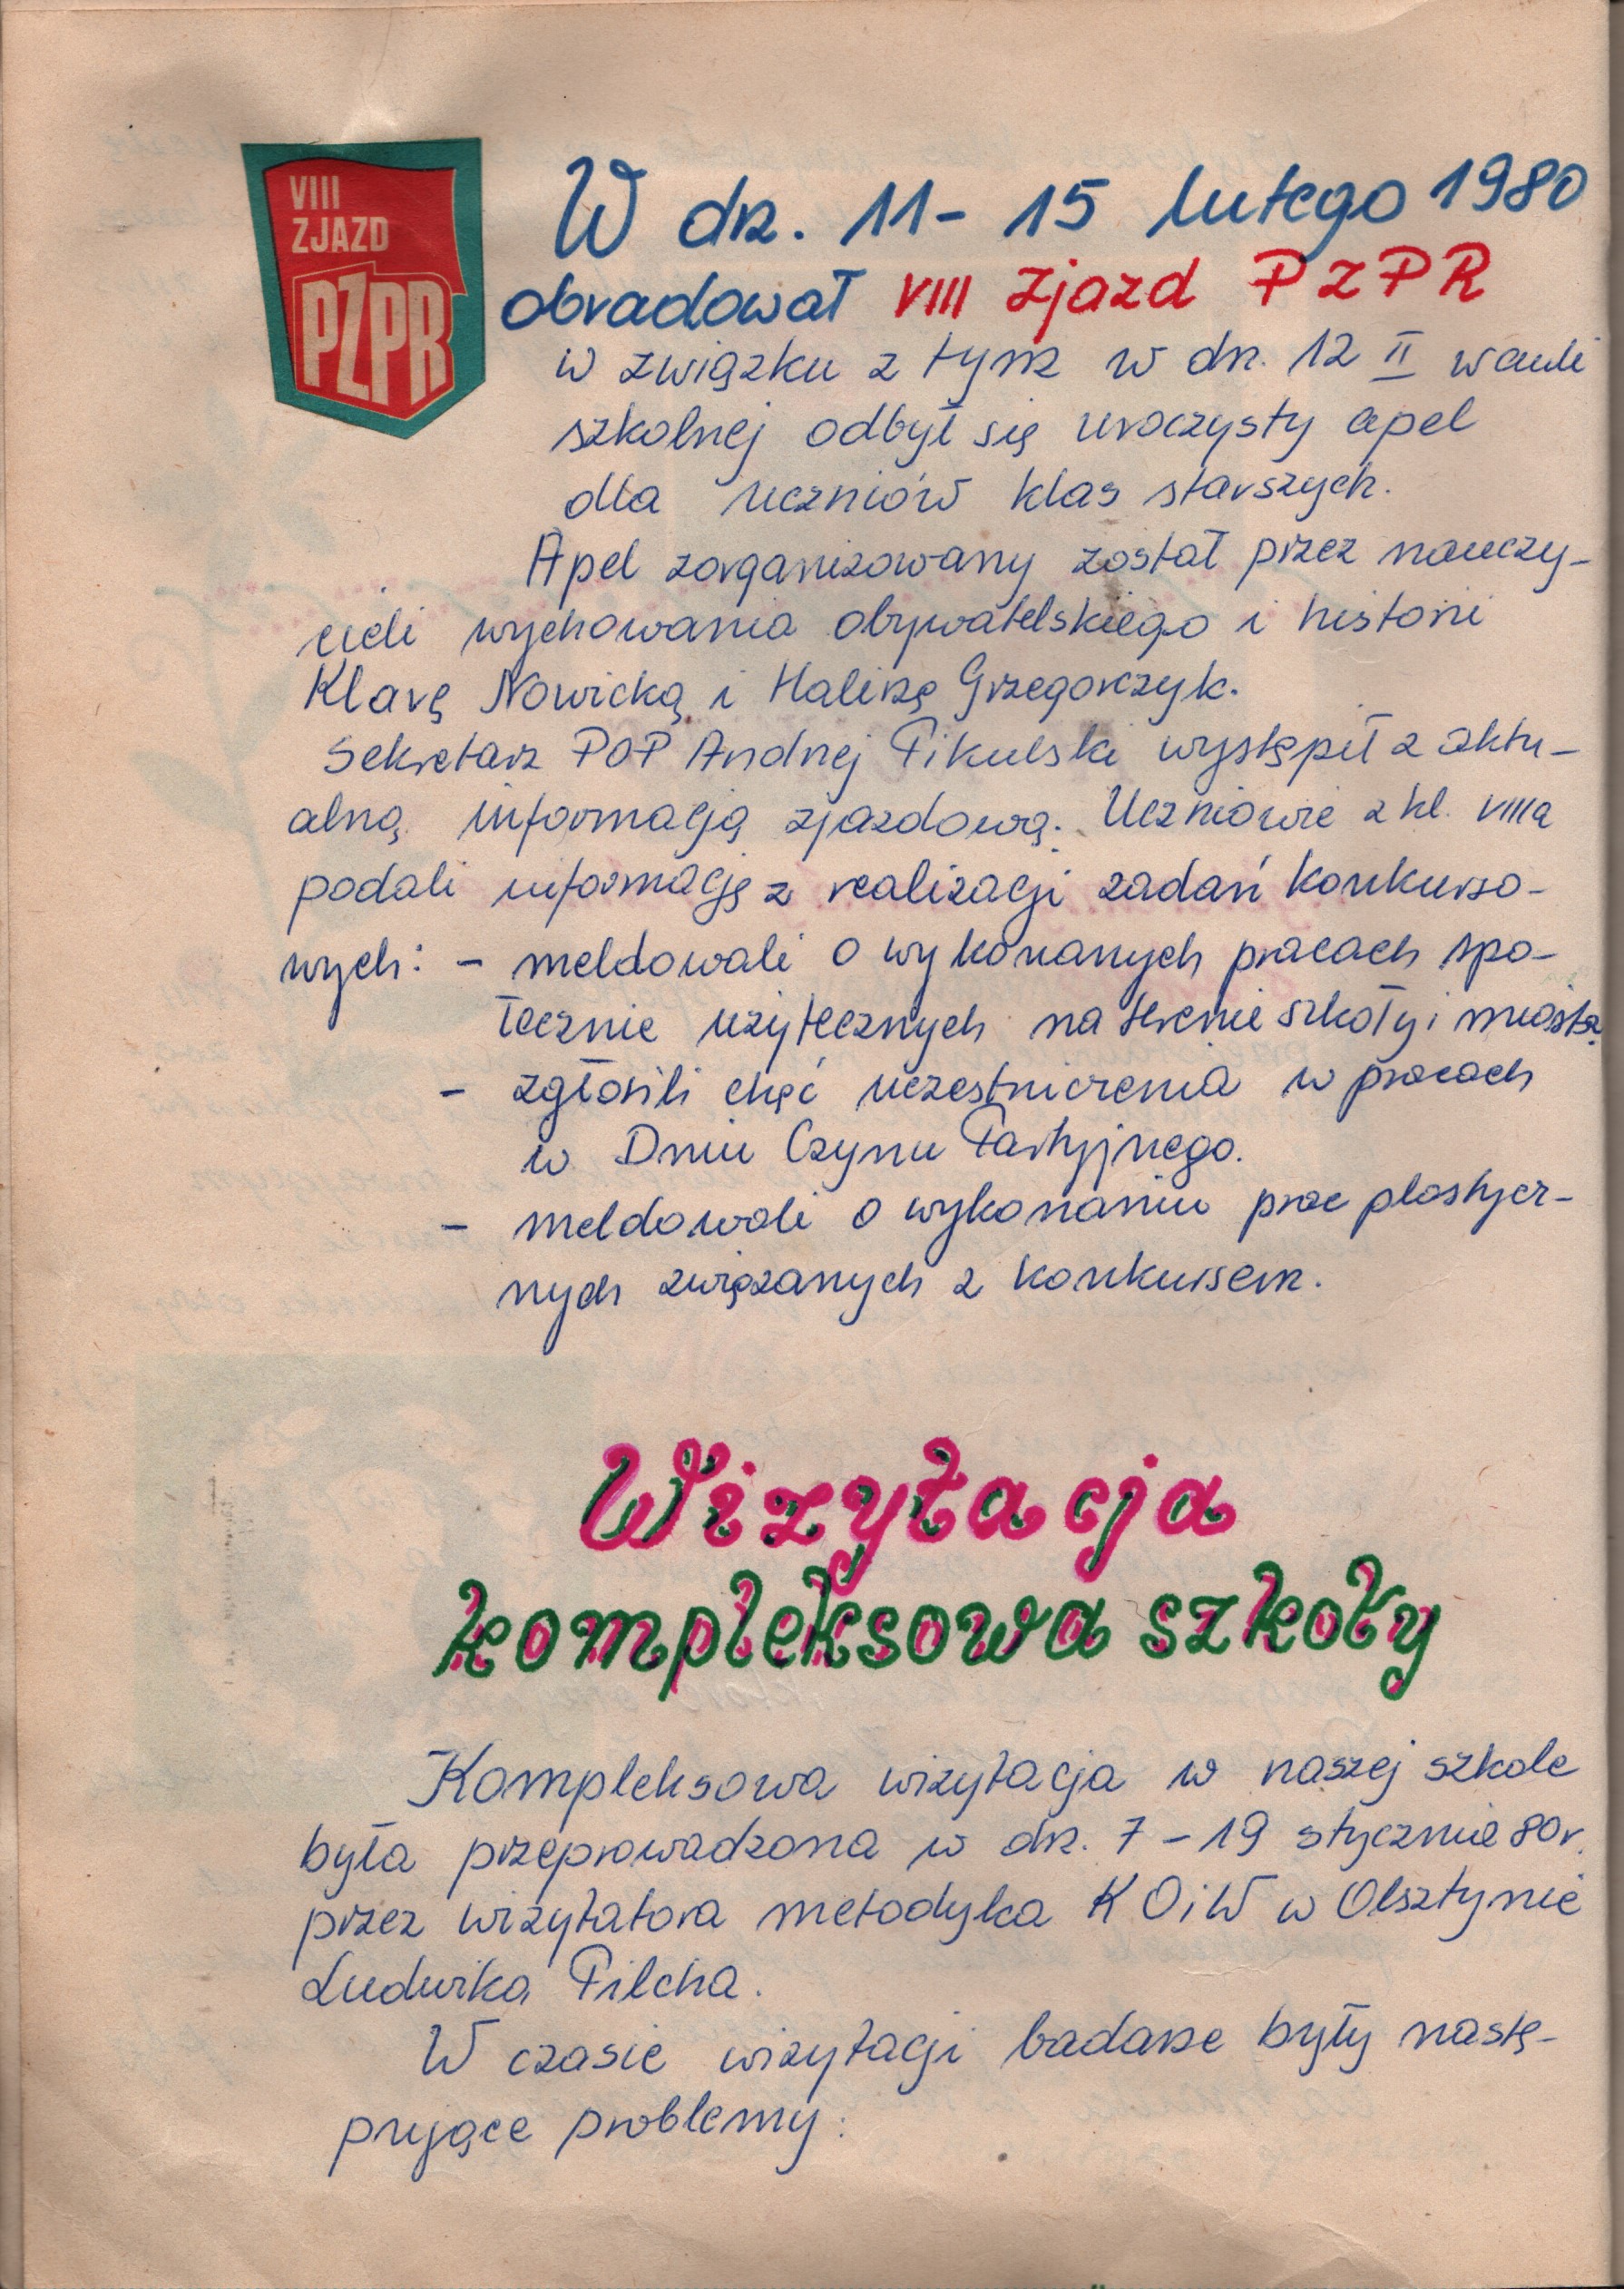 VIII
ZJAZD
PZPR
W dn. 11-15 lutego 1980
obradował VIII Zjazd PZPR
w związku z tym w dn. 12 II w auli
szkolnej odbył się uroczysty apel
dla uczniów klas starszych.
Apel zorganizowany został przez nauczy-
cieli wychowania obywatelskiego i historii
Klarę Nowicką i Halinę Grzegorczyk.
Sekretarz POP Andrzej Pikulski wystąpił z aktu-
alną informacją zjazdową. Uczniowie z kl. VIIIa
podali informację z realizacji zadań konkurso-
wych: - meldowali o wykonanych pracach spo-
łecznie użytecznych na terenie szkoły i miasta
- zgłosili chęć uczestniczenia w pracach
w Dniu Czynu Partyjnego.
- meldowali o wykonaniu prac plastycz-
nych związanych z konkursem.
Wizytacja
kompleksowa szkoły
Kompleksowa wizytacja w naszej szkole
była przeprowadzona w dn. 7-19 stycznia 80r.
przez wizytatora metodyka KOiW w Olsztynie
Ludwika Pilcha.
W czasie wizytacji badane były nastę-
pujące problemy: